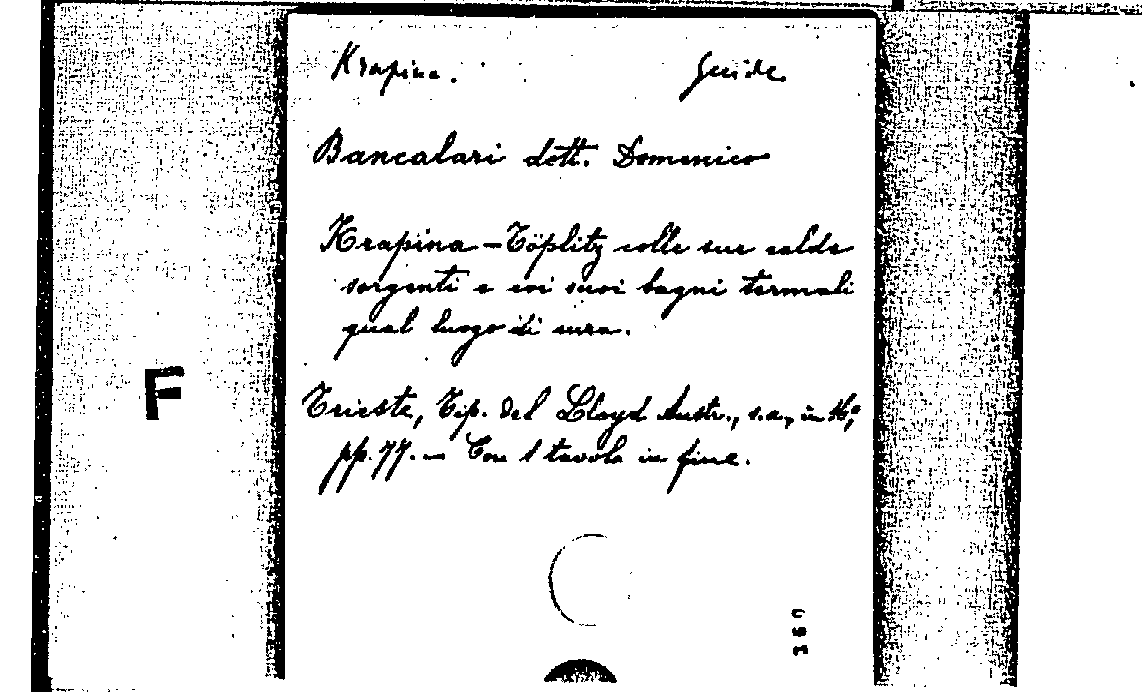 Krapina. Guide
Bancalari dott. Domenico
Krapina-Töplitz colle sue calde
sorgenti e coi suoi bagni termali
qual luogo di cura.
Trieste, Tip. del Lloyd Austr., s.a., in 16°,
pp. 77. — Con 1 tavola in fine.
F